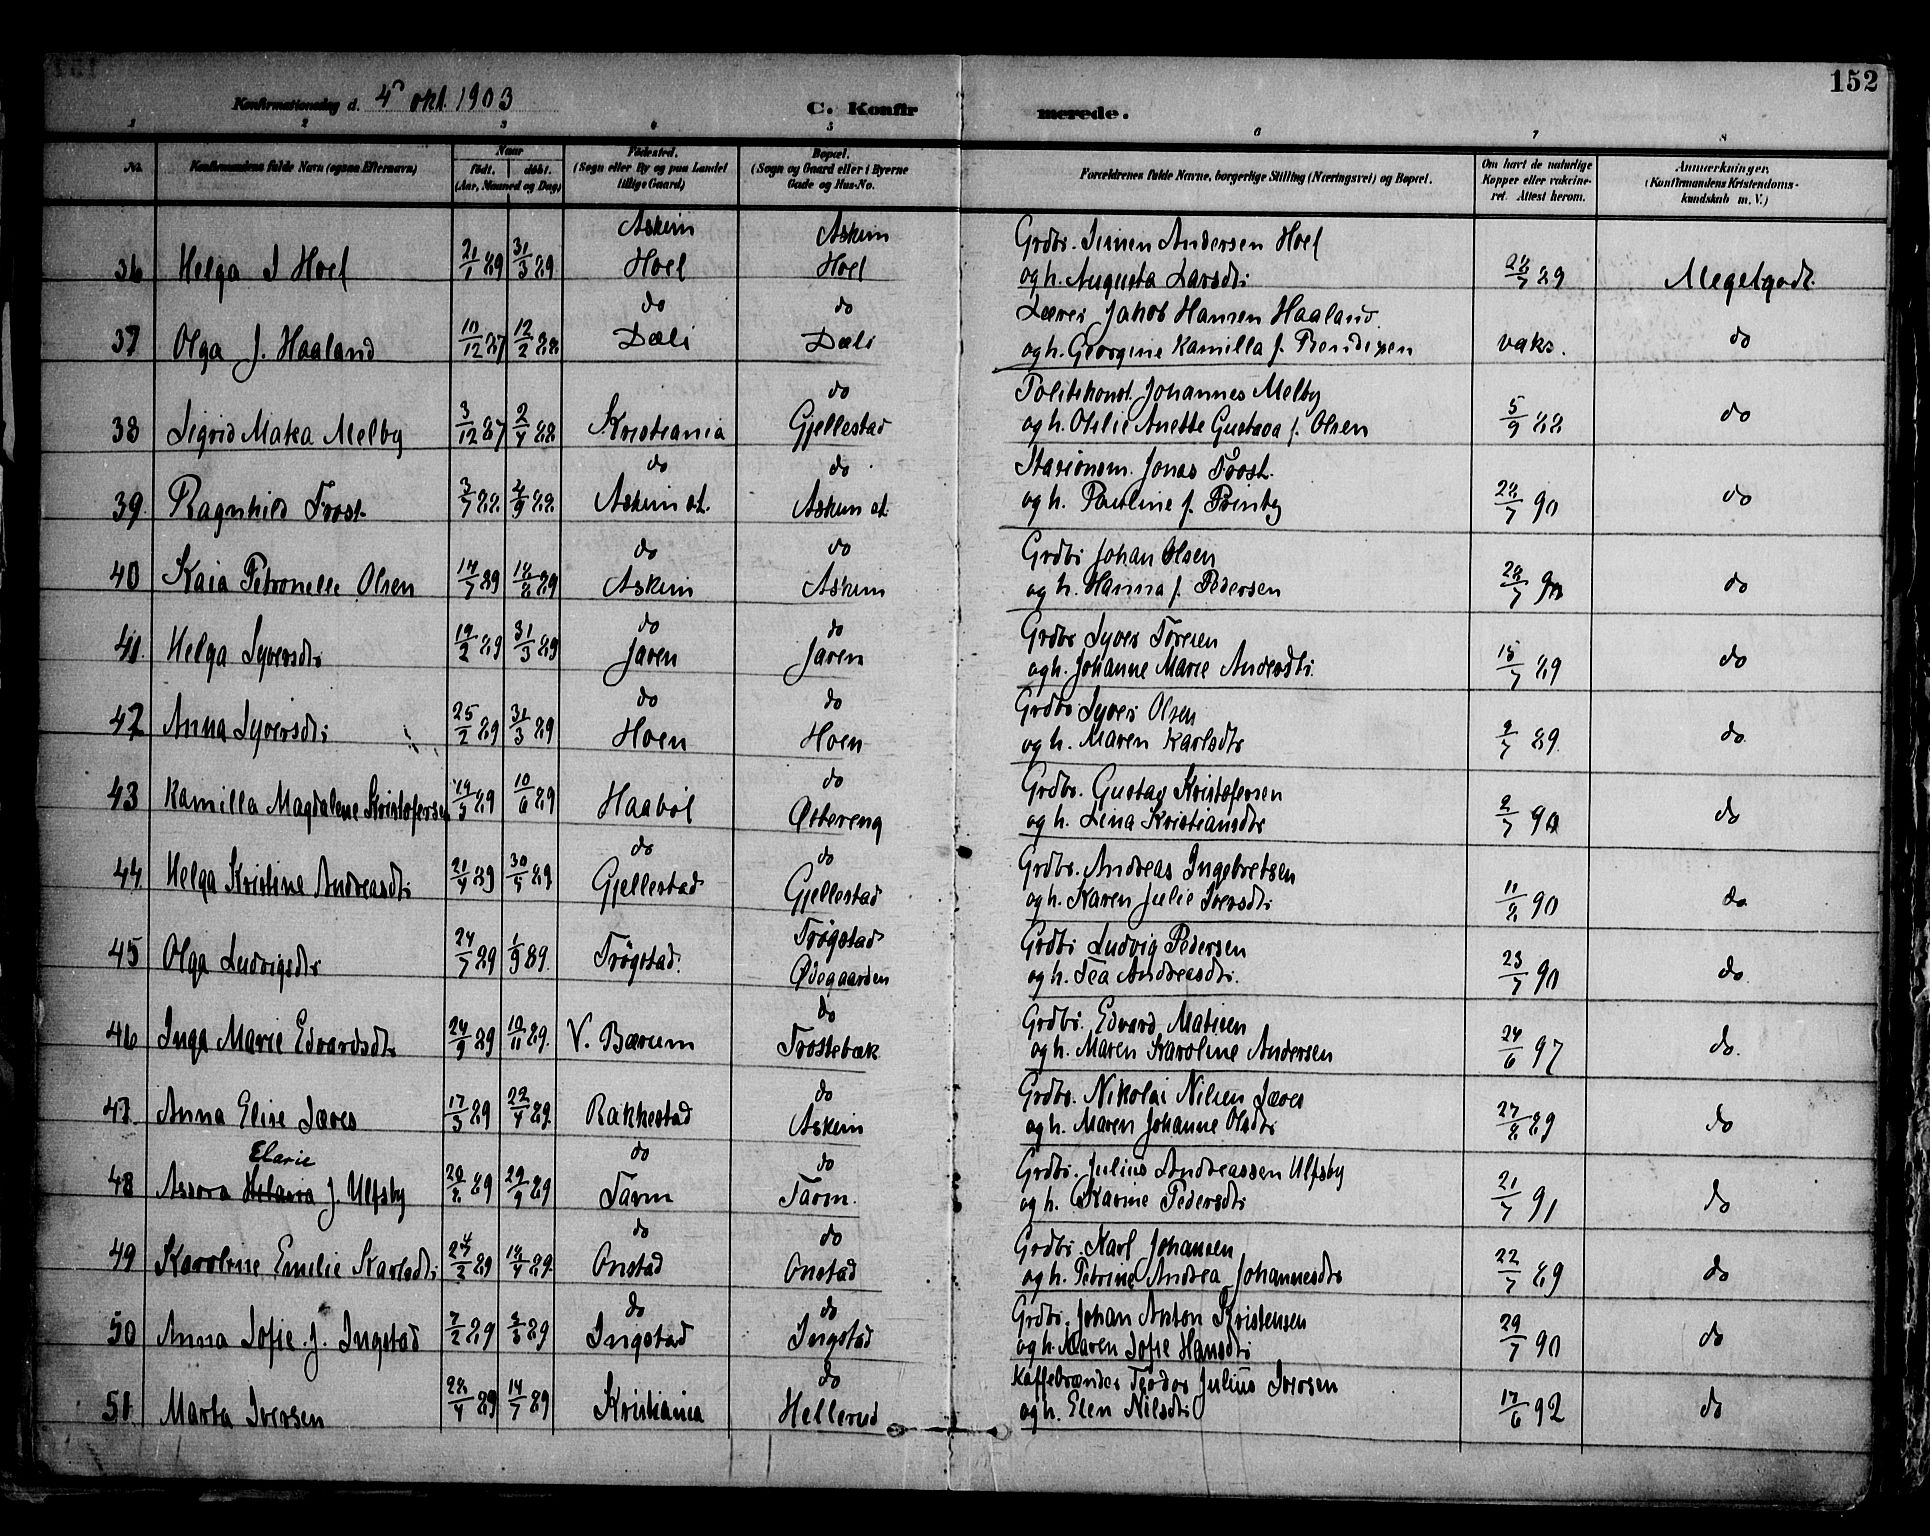 152
Konfirmationsdag d. 4 okt 1903
C. Konfirmerede.
1 2 3 4 5 6 7 8
No. Konfirmandens fulde Navn (ogsaa Efternavn) Naar født. døbt. (Aar, Maaned og Dag) Fødested. (Sogn eller By og paa Landet tillige Gaard) Bopæl. (Sogn og Gaard eller i Byerne Gade og Hus-No. Forældrenes fulde Navne, borgerlige Stilling (Næringsvei) og Bopæl. Om havt de naturlige Kopper eller vakcineret. Attest herom. Anmærkninger. (Konfirmandens Kristendomskundskab m. V.)
Askim Askim Grdbr. Simen Andersen Hoel
36 Helga S Hoel 21/1 89 31/3 89 Hoel Hoel og h. Augusta Larsdtr 28/7 89 Megetgodt.
do do Lærer Jakob Hansen Haaland.
37 Olga J. Haaland 10/12 87 12/2 88 Dæli Dæli og h. Georgine Kamilla f. Bendixen vaks. do
do Politikonst. Johannes Melby
38 Sigrid Matea Melby 3/12 87 2/4 88 Kristiania Gjellestad og h. Otilie Anette Gustava f. Olsen 5/9 88 do
do do Stasionsm. Jonas Trost.
39. Ragnhild Trost 3/7 88 4/9 88 Askim st. Askim st. og h. Pauline f. Brinby 28/7 90 do
do do Grdbr Johan Olsen
40 Kaia Petronelle Olsen 14/7 89 18/8 89 Askim Askim og h. Hanna f. Pedersen 28/7 90 do
do do Grdbr Syver Toresen
41. Helga Syversdtr 19/2 89 31/3 89 Jaren Jaren og h. Johanne Marie Andersdtr. 15/7 89 do
do do Grdbr Syver Olsen
42 Anna Syversdtr 25/2 89 31/3 89 Hoen Hoen og h. Maren Karlsdtr 9/7 89. do
do Grdbr. Gustav Kristofersen
43 Kamilla Magdalene Kristofersen 19/3 89 10/6 89 Haabøl Østereng og h. Lina Kristiansdtr 2/7 90 do
do do Grdbr. Andreas Ingebretsen
44 Helga Kristine Andreasdtr 21/4 89 30/5 89 Gjellestad Gjellestad og h. Karen Julie Iversdtr 11/8 90 do
Trøgstad Grdbr Ludvig Pedersen
45 Olga Ludvigsdtr 24/7 89 1/9 89. Trøgstad. Ødegaarden og h. Tea Andreasdtr. 23/7 90 do
do Grdbr. Edvard Matisen
46 Inga Marie Edvardsdtr 24/9 89 10/11 89. V. Bærum Trostebæk og h. Maren Karoline Andersen 24/6 97 do.
do Grdbr. Nikolai Nilsen Jæves
47. Anna Elise Jæves 17/3 89 22/4 89. Rakkestad Askim og h. Maren Johanne Olsdtr 27/8 89 do
Elarie do do Grdbr. Julius Andreassen Ulfsby
48 Assora Helaria J. Ulfsby 20/8 89 29/9 89 Tarm Tarm. og h. Karine Pedersdtr 21/7 91 do
do do Grdbr. Karl Johansen
49 Karoline Emilie Karlsdtr 24/2 89 18/4 89. Onstad Onstad og h. Petrine Andrea Johannesdtr 22/7 89 do
do do Grdbr. Johan Anton Kristensen
50 Anna Sofie J. Ingstad 7/2 89 3/3 89 Ingstad Ingstad og h. Maren Sofie Hansdtr 29/7 90 do
do Kaffebrænder Teodor Julius Iversen
51. Marta Iversen 28/4 89 14/7 89 Kristiania Hellerud og h. Elen Nilsdtr 17/6 92 do